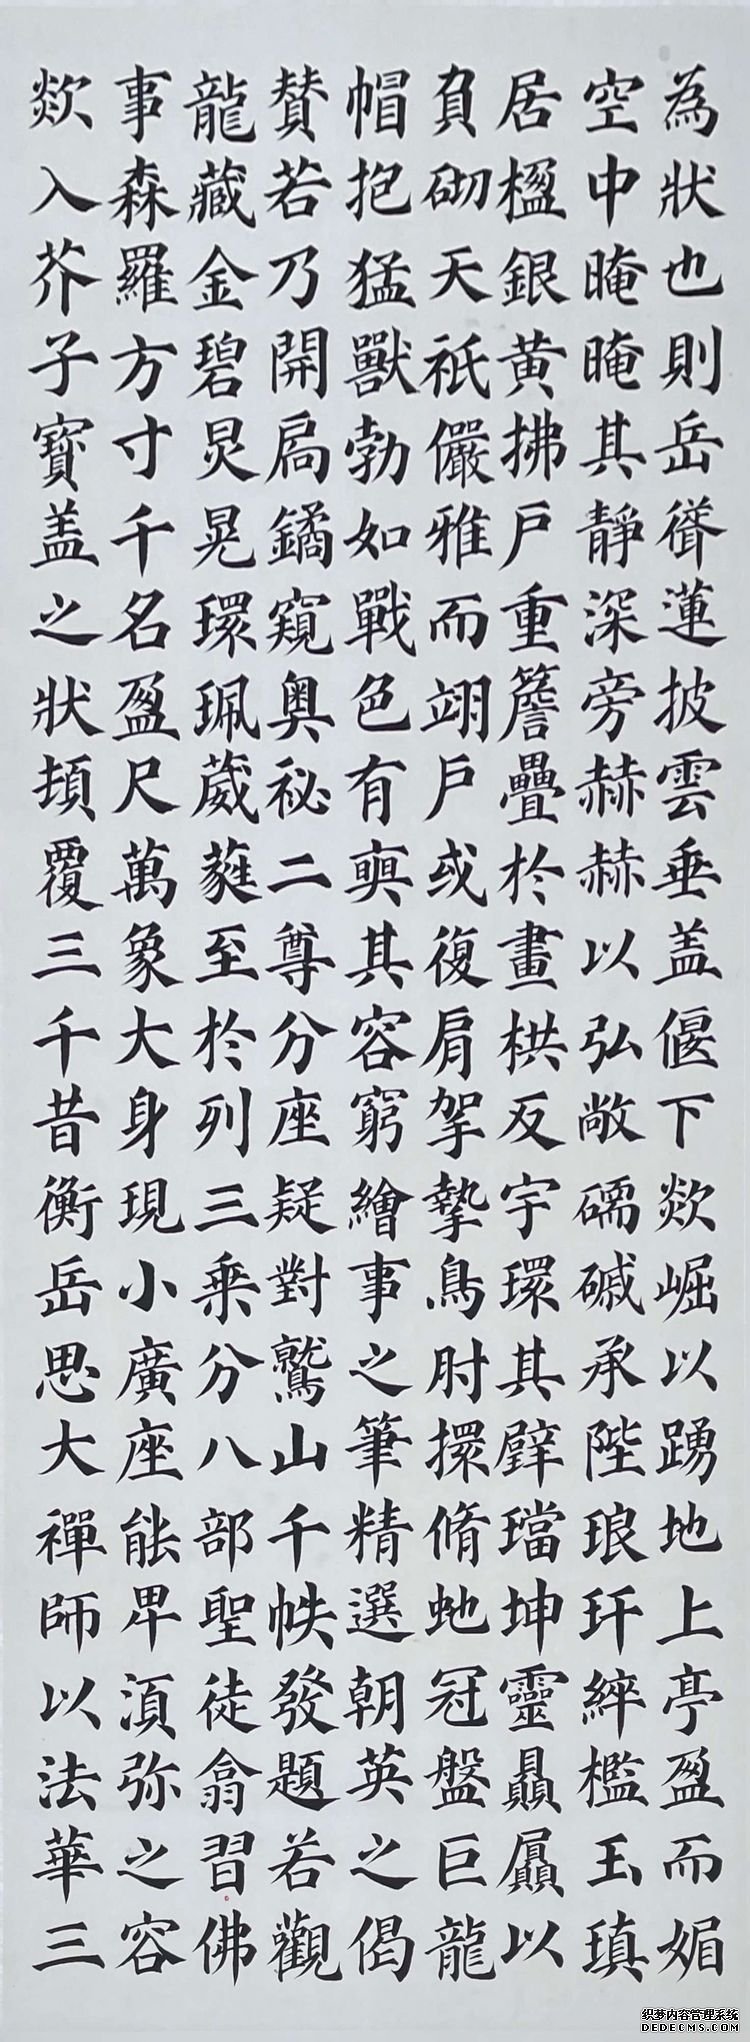 為狀也則岳聳蓮披雲垂盖偃下欻崛以踴地上亭盈而媚
空中晻晻其靜深旁赫赫以弘敞礝磩承陛琅玕綷檻玉瑱
居楹銀黄拂戶重簷疊於畫栱反宇環其璧璫坤靈贔屭以
負砌天祇儼雅而翊戶或復肩挐摯鳥肘擐脩虵冠盤巨龍
帽抱猛獸勃如戰色有奭其容窮繪事之筆精選朝英之偈
賛若乃開扃鐍窺奥祕二尊分座疑對鷲山千帙發題若觀
龍藏金碧炅晃環珮葳蕤至於列三乘分八部聖徒翕習佛
事森羅方寸千名盈尺萬象大身現小廣座能卑湏弥之容
欻入芥子寳盖之狀頓覆三千昔衡岳思大禪師以法華三
织梦内容管理系统
DEDECMS.COM